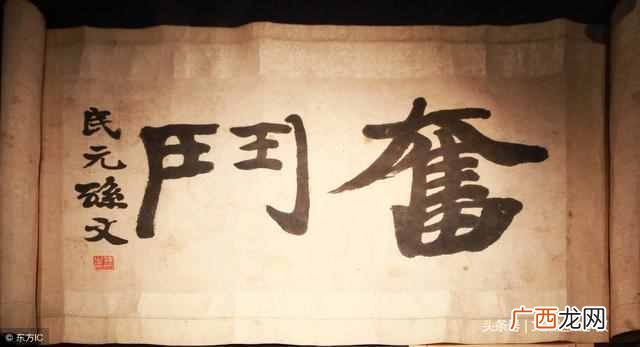 奮鬥
民元孫文
© 东方IC
头条
广西龙网